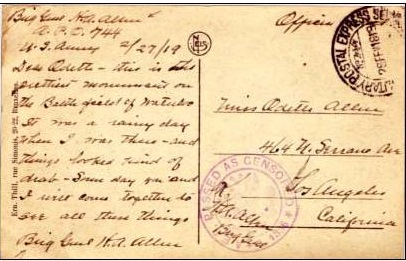 Brig Genl H.A. Allen
A.P.O. 744
U.S. Army 2/27/19
Dear Odette – this is the
prettiest monument on
the Battle field of Waterloo
It was a rainy day
when I was there – and
things looked kind of
drab – Some day you and
I will come together to
see all these things
Brig Genl H.A. Allen
Ern. Thill, rue Simonis, 20-22, Bruxelles
MILITARY POSTAL EXPRESS SERVICE
Miss Odette Allen
464 N. Serrano Ave
Los Angeles
California
PASSED AS CENSORED
H.A. Allen
Brig Gen